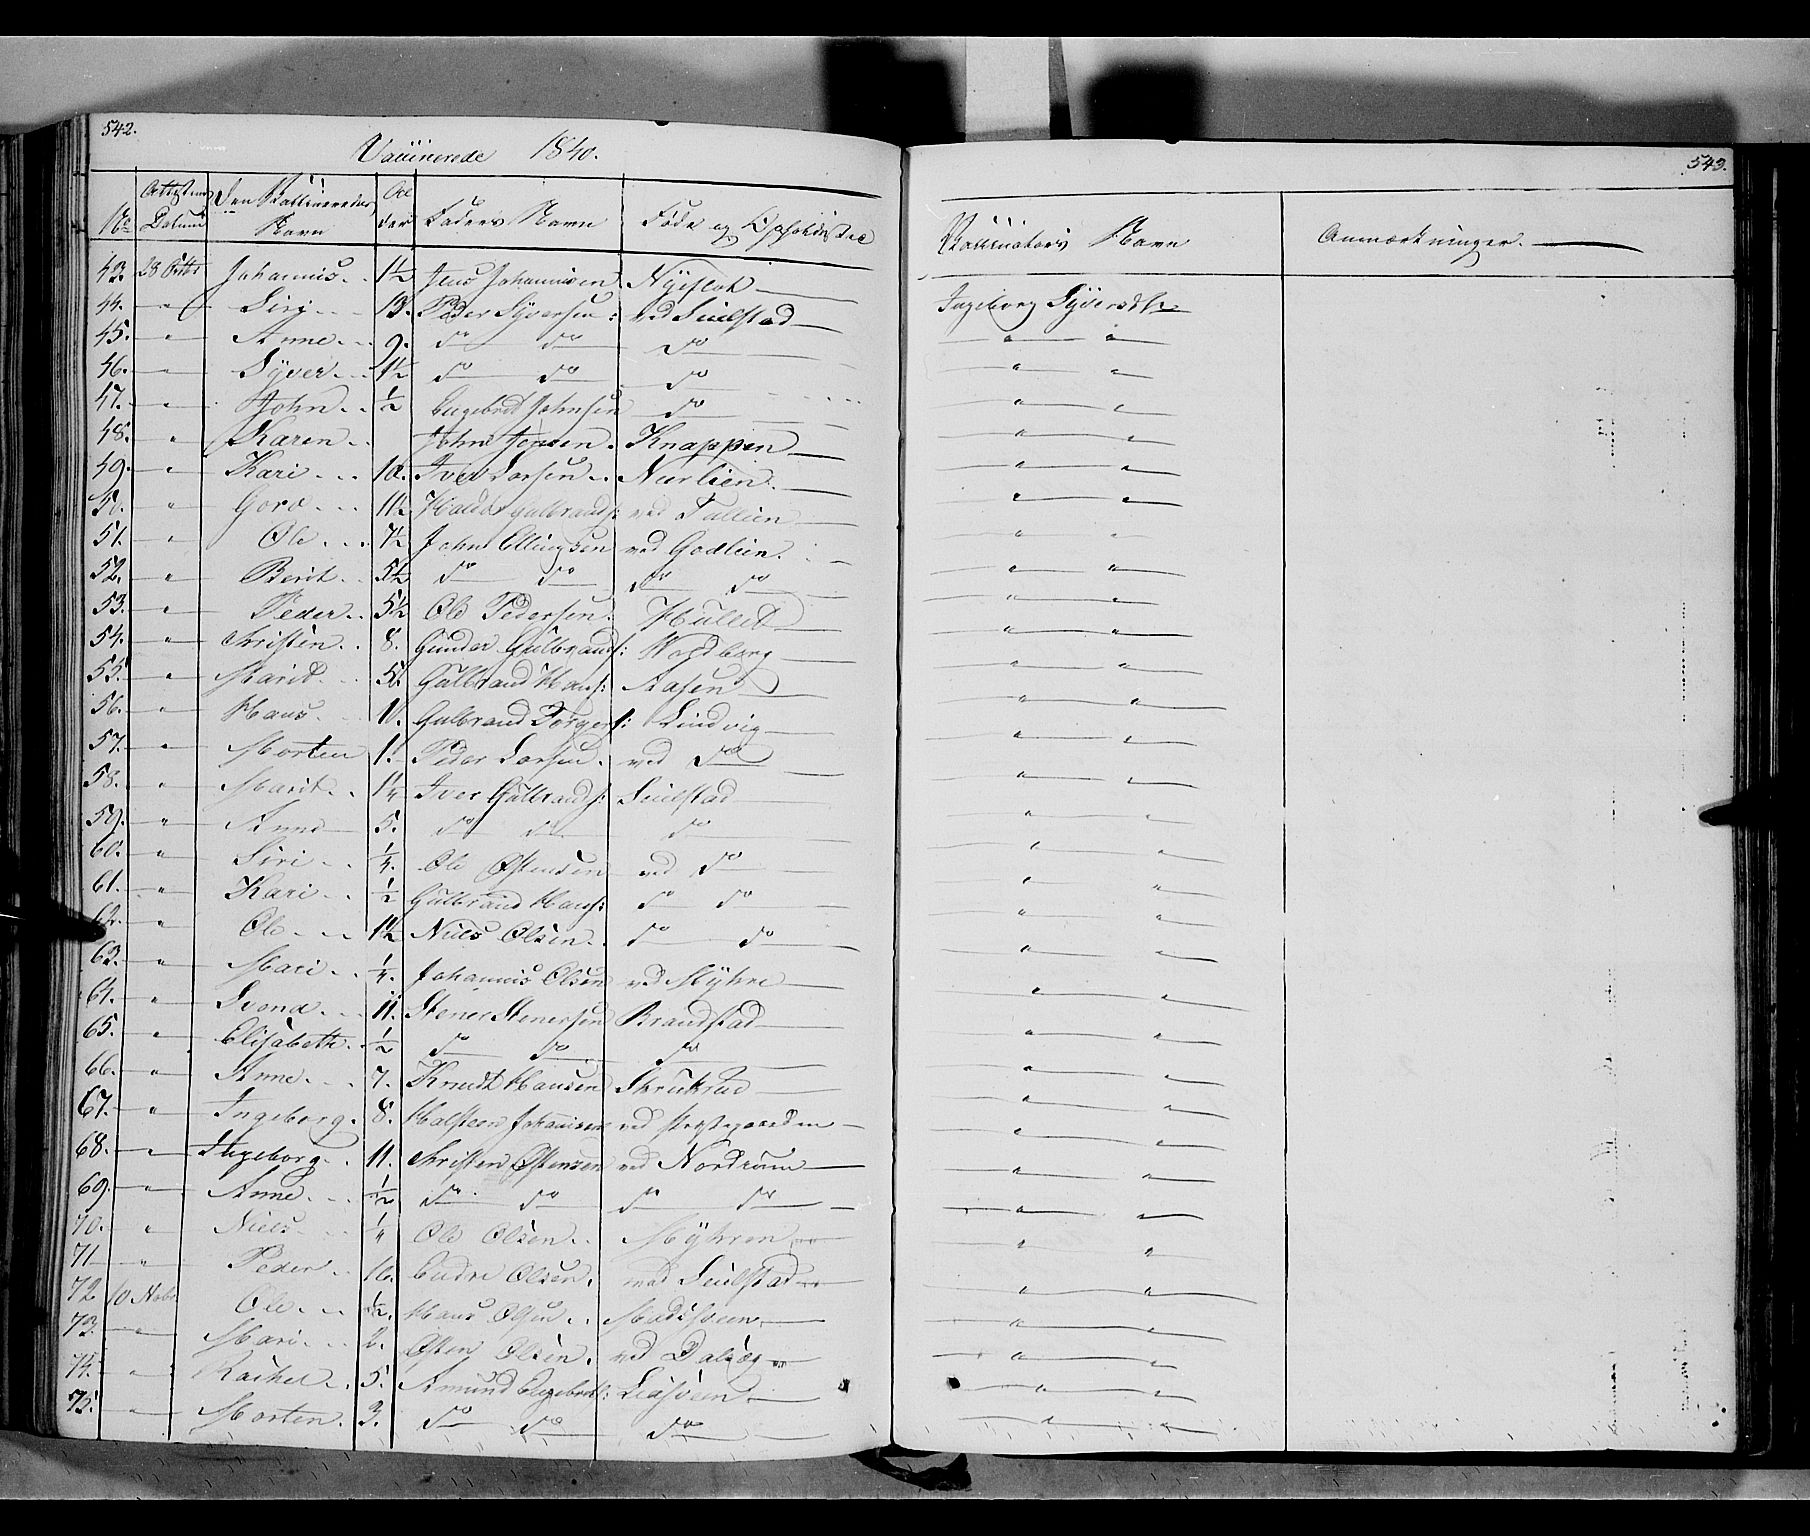 542.
Vaccinerede 1840.
No Attestens Datum Den Vaccineredes Navn Alder Faders Navn Føde og Opholds Sted
43. 28 Octbr Johannes 1½ Jens Johannisen
44. " Siri 13. Peder Syversen ved
45. " Anne 9. do do do
46. " Syver 1½ do do do
47. " John ½ Engebret Johnsen do
48. " Karen John Jensen Knappen
49. " Kari 10. Iver Larsen
50. " Goro 11½ Gulbrands: ved
51. " Ole 7½ John Ellingsen ved Godlien
52. " Berit 5½ do do do do
53. " Peder 5½ Ole Pedersen Hullet
54. " Christen 8. Gunder Gulbrands: Nordberg
55. " Marit 5. Gulbrand Hans: Aasen
56. " Hans 10. Gulbrand Torgers: Lindvig
57. " Morten 1. Peder Larsen ved do
58. " Marit 1¼ Iver Gulbrands:
59. " Anne 5. do do do
60. " Siri ¼ Ole Østensen ved do
61. " Kari ½ Gulbrand Hans: do do
62. " Ole 1½ Niels Olsen do do
63. " Mari ¼. Johannis Olsen ved Myhre
64. " Svend 11. Stener Stenersen Brandstad
65. " Elisabeth ½ do do do
66. " Anne 7. Knudt Hansen Skrukrud
67. " Ingeborg 8. Halsteen Johannisen ved Præstegaarden
68. " Ingeborg 11. Christen Østensen ved Nordrum
69. " Anne ½ do do do do
70. " Niels ¼ Ole Olsen Myhren
71 " Peder 16. Endre Olsen ved
72 10 Novbr Ole ½. Hans Olsen
73. " Mari 2. Østen Olsen ved
74. " Rachel 5. Amund Engebrets:
75. " Morten 3. do do do
543.
Vaccinators Navn Anmærkninger.
Ingeborg Syversdtr
" "
" "
" "
" "
" "
" "
" "
" "
" "
" "
" "
" "
" "
" "
" "
" "
" "
" "
" "
" "
" "
" "
" "
" "
" "
" "
" "
" "
" "
" "
" "